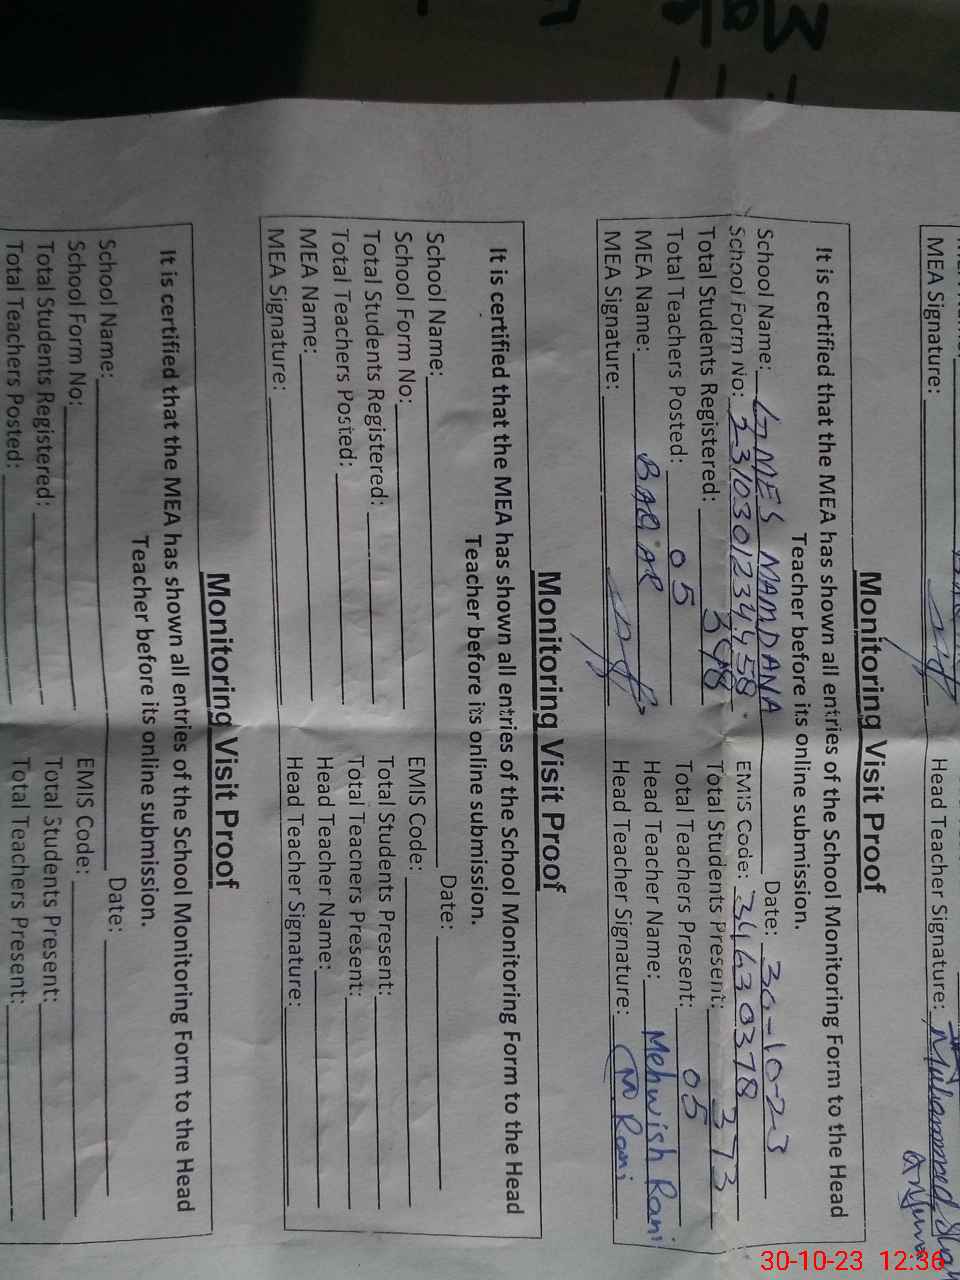 MEA Signature: Head Teacher Signature: Muhammad
Monitoring Visit Proof
It is certified that the MEA has shown all entries of the School Monitoring Form to the Head
Teacher before its online submission.
School Name: GMES MAMDANA Date: 30-10-23
School Form No: EMIS Code: 34630378
Total Students Registered: 398 Total Students Present: 373
Total Teachers Posted: 05 Total Teachers Present: 05
MEA Name: BABAR Head Teacher Name: Mehwish Rani
MEA Signature: Head Teacher Signature: M Rani
Monitoring Visit Proof
It is certified that the MEA has shown all entries of the School Monitoring Form to the Head
Teacher before its online submission.
School Name: Date:
School Form No: EMIS Code:
Total Students Registered: Total Students Present:
Total Teachers Posted: Total Teachers Present:
MEA Name: Head Teacher Name:
MEA Signature: Head Teacher Signature:
Monitoring Visit Proof
It is certified that the MEA has shown all entries of the School Monitoring Form to the Head
Teacher before its online submission.
School Name: Date:
School Form No: EMIS Code:
Total Students Registered: Total Students Present:
Total Teachers Posted: Total Teachers Present:
30-10-23 12:36